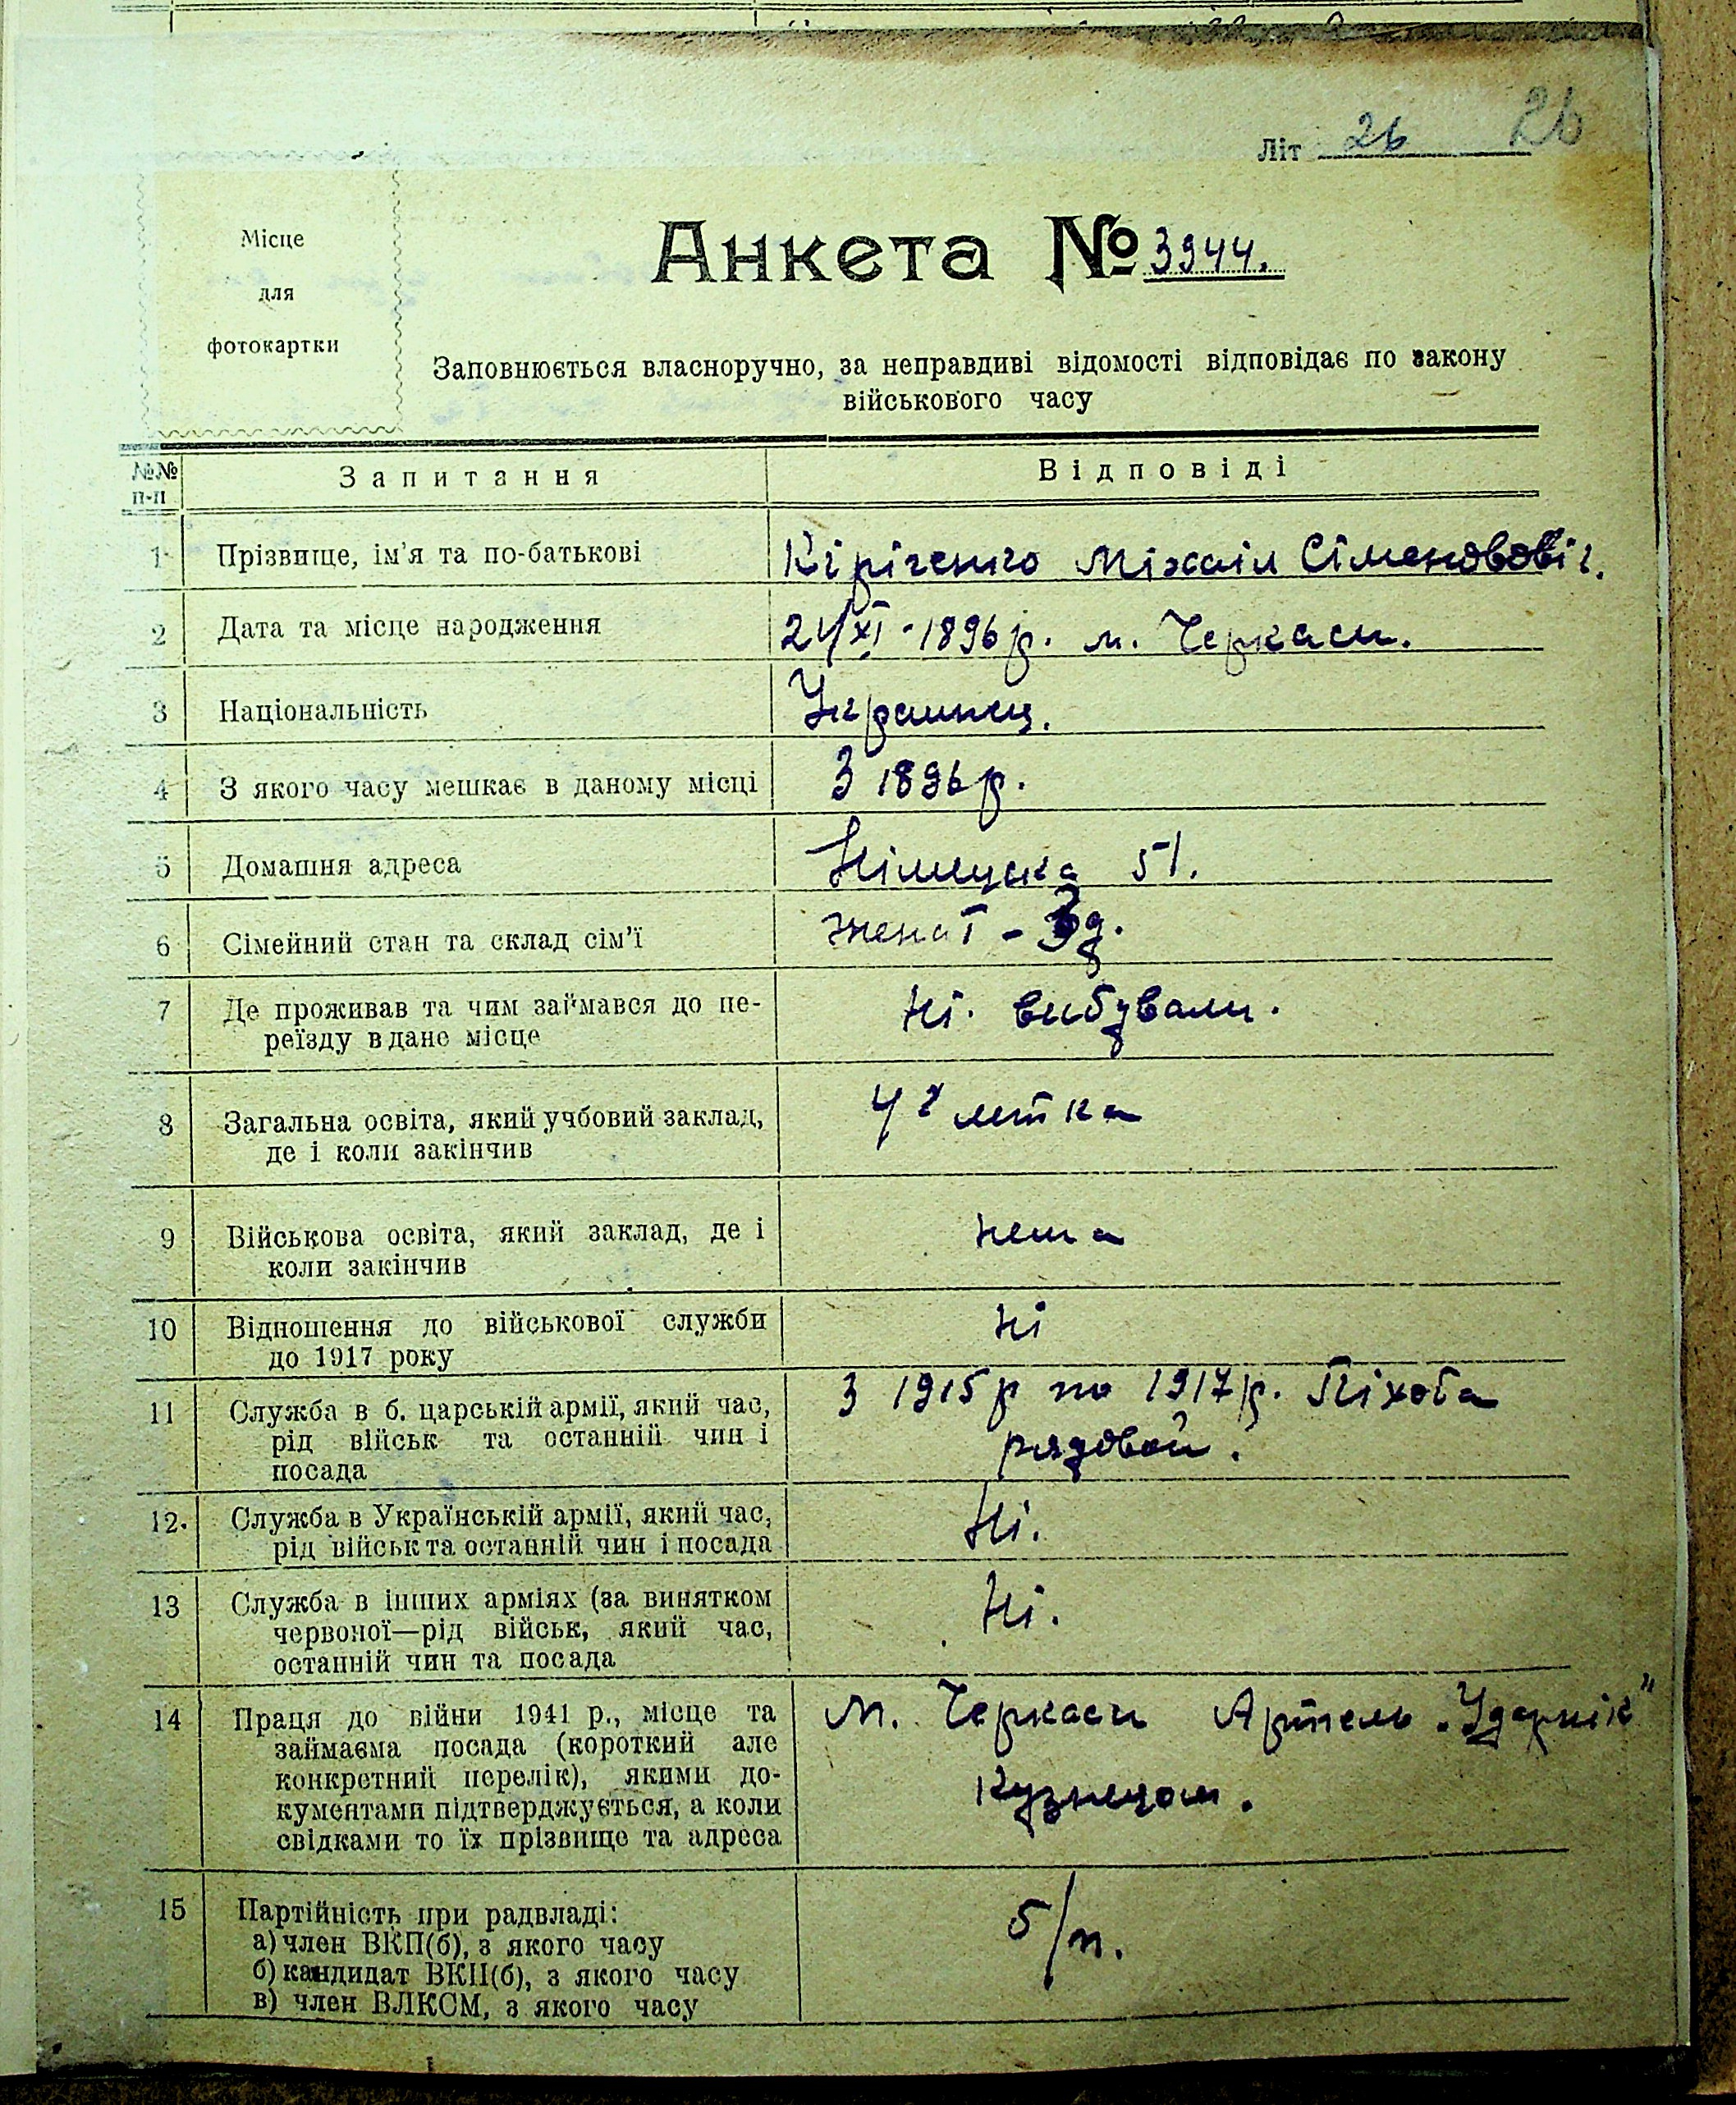 Літ 26 26
Місце
для
фотокартки
Анкета № 3944.
Заповнюється власноручно, за неправдиві відомості відповідає по закону
військового часу
№№
п-п
Запитання
Відповіді
1 Прізвище, ім'я та по-батькові
Кіріченко Міхаіл Сіменовович.
2 Дата та місце народження
24/XI-1896 р. м. Черкаси.
3 Національність
Украинец.
4 З якого часу мешкає в даному місці
З 1896 р.
5 Домашня адреса
Німецька 51.
6 Сімейний стан та склад сім'ї
женат - 3 д.
7 Де проживав та чим займався до пе-
реїзду в дане місце
Ні. вибували.
8 Загальна освіта, який учбовий заклад,
де і коли закінчив
4х летка
9 Військова освіта, який заклад, де і
коли закінчив
нема
10 Відношення до військової служби
до 1917 року
ні
11 Служба в б. царській армії, який час,
рід військ та останній чин і
посада
З 1915 р по 1917 р. Піхота
рядовой.
12. Служба в Українській армії, який час,
рід військ та останній чин і посада
Ні.
13 Служба в інших арміях (за винятком
червоної—рід військ, який час,
останній чин та посада
Ні.
14 Праця до війни 1941 р., місце та
займаєма посада (короткий але
конкретний перелік), якими до-
кументами підтверджується, а коли
свідками то їх прізвище та адреса
м. Черкаси Артель „Ударнік"
Кузнецом.
15 Партійність при радвладі:
а) член ВКП(б), з якого часу
б) кандидат ВКП(б), з якого часу
в) член ВЛКСМ, з якого часу
б/п.